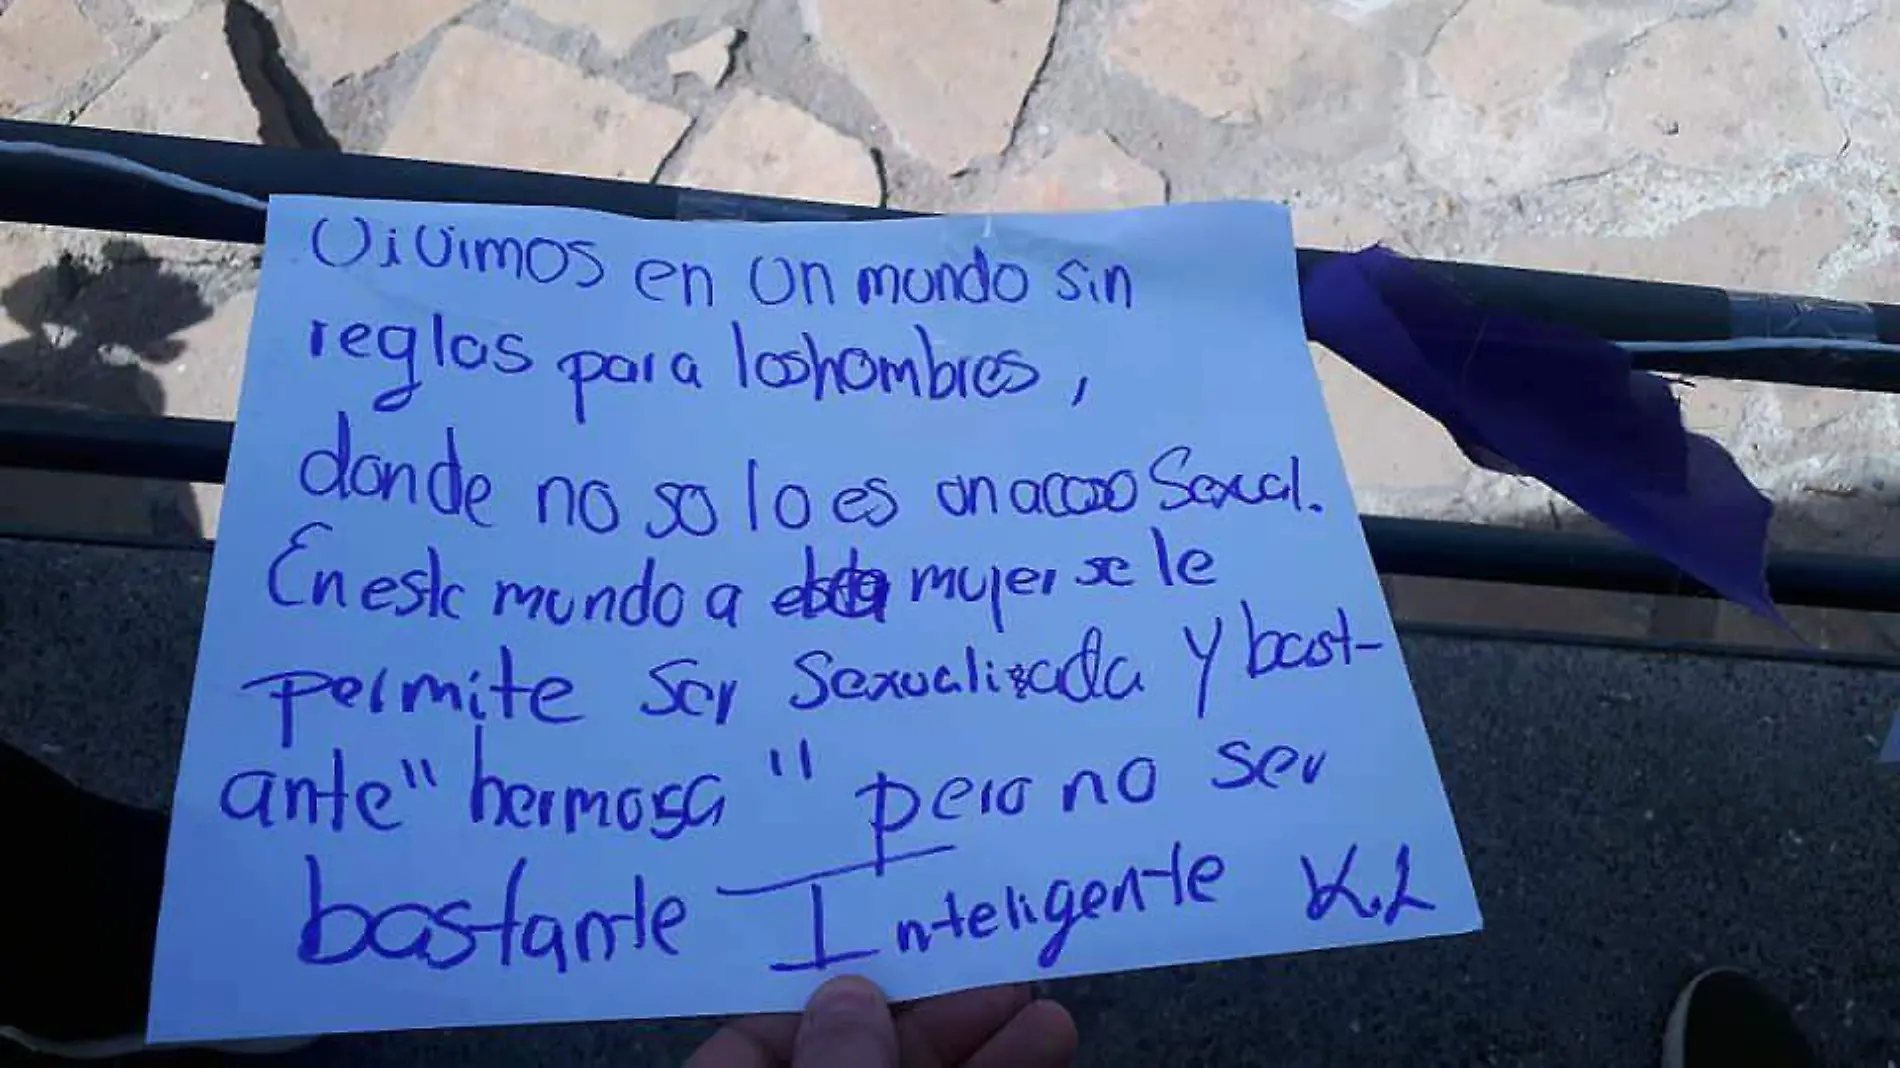 Vivimos en un mundo sin
reglas para loshombres,
donde no so lo es un acoso Sexual.
En este mundo a mujer se le
permite ser sexualizada y bast-
ante "hermosa" pero no ser
bastante Inteligente K.L